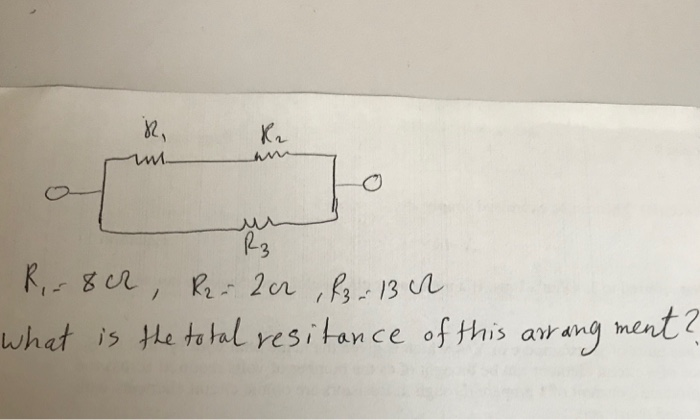 R₁ R₂
R₃
R₁ = 8 Ω, R₂ = 2 Ω, R₃ = 13 Ω
what is the total resitance of this arrang ment?